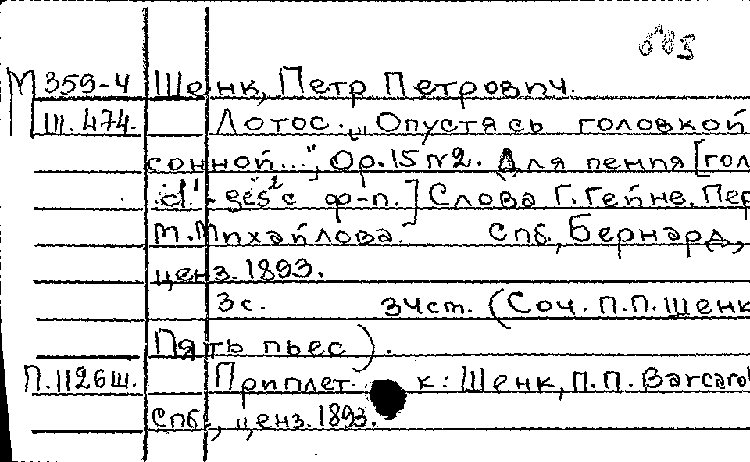 М 359-4 Шенк, Петр Петрович.
Ш. 474. Лотос. „Опустясь головкой
сонной...", Op. 15 №2. Для пения [гол.
d¹-ges² с ф-п.] Слова Г. Гейне. Пер
М. Михайлова. Спб., Бернард,
ценз. 1893.
3 с. 34 ст. (Соч. П.П. Шенк
Пять пьес).
П. 1126ш. Приплет. к: Шенк, П.П. Barcarol
Спб., ценз. 1893.